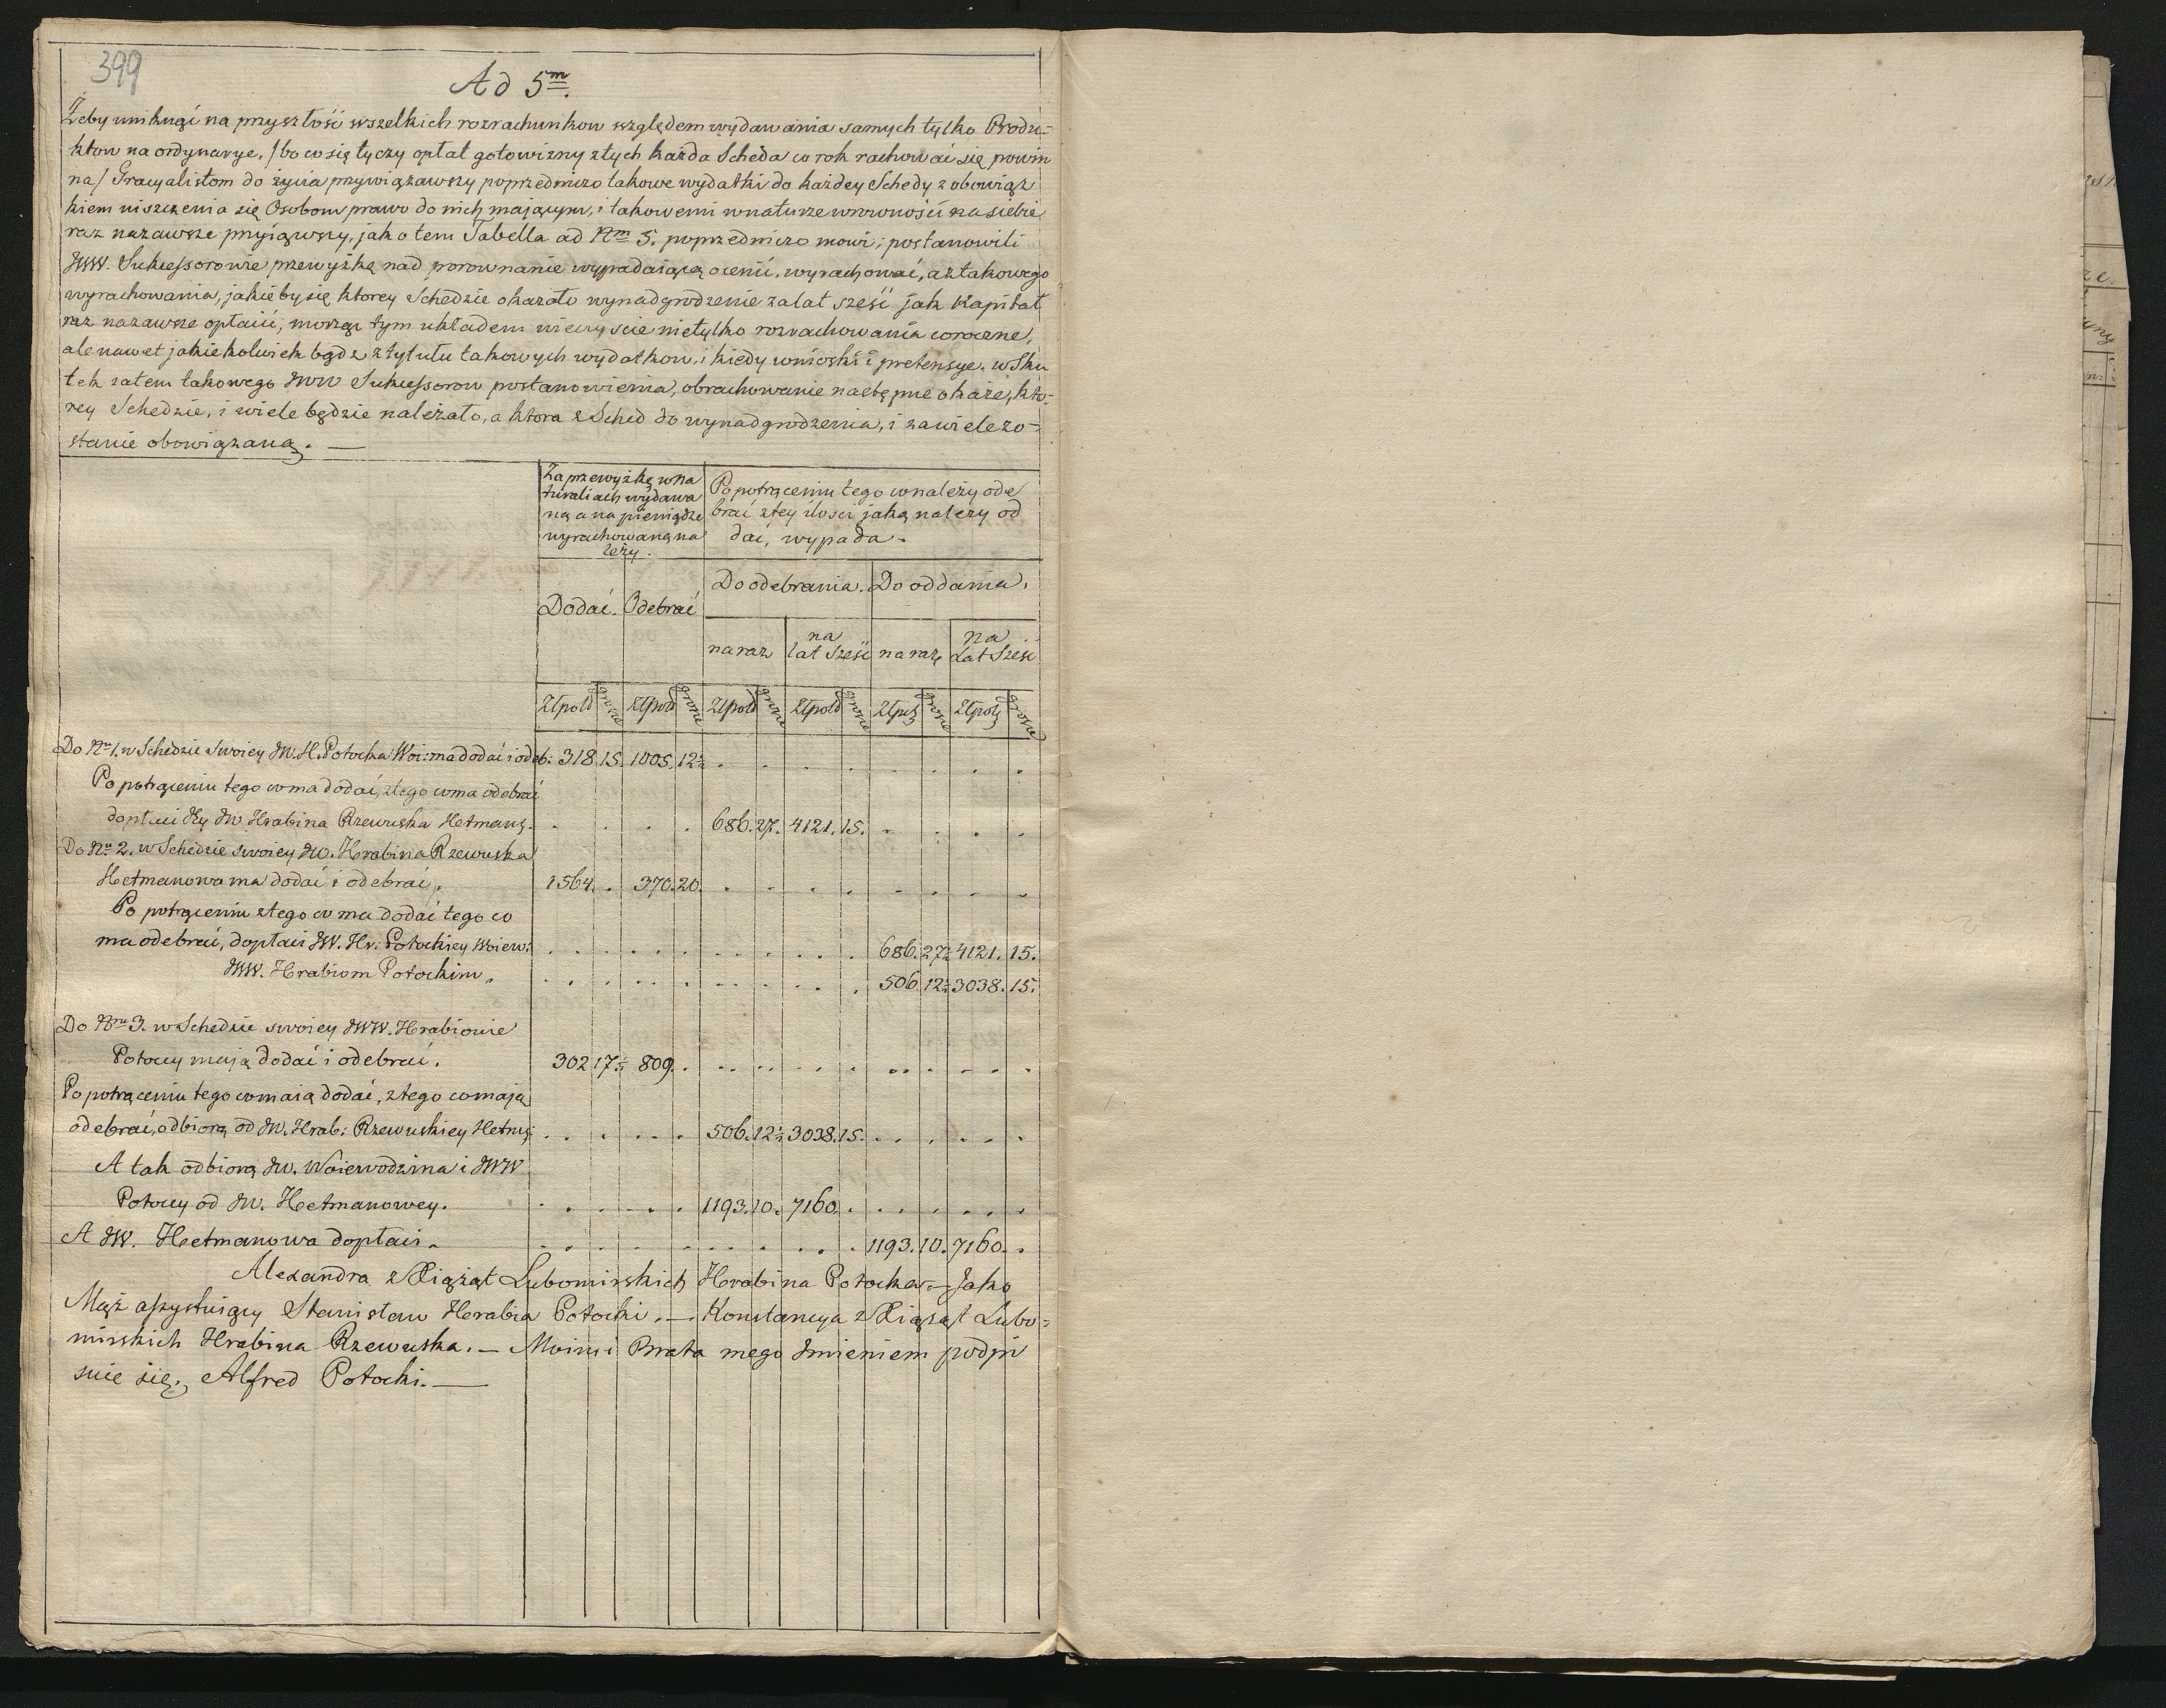 399
Ad 5m.
Żeby uniknąć na przyszłość wszelkich rozrachunkow względem wydawania samych tylko Produ-
ktow na ordynarye, /bo co się tyczy opłat gotowizny z tych każda Scheda co rok rachować się powin
na/ Gracyalistom do życia przywiązawszy poprzedniczo takowe wydatki do każdey Schedy z obowiąz
kiem uiszczenia się Osobom prawo do nich maiącym, i takowemi w naturze w rowności na siebie
raz nazawsze przyiąwszy, jak o tem Tabella ad Nm 5. poprzedniczo mowi; postanowili
JWW. Sukcessorowie przewyżkę nad porownanie wypadaiącą ocenić, wyrachować, a z takowego
wyrachowania, jakie by się ktorey Schedzie okazało wynadgrodzenie za lat sześć jak Kapitał
raz nazawsze opłacić, morząc tym układem wieczyście nietylko rozrachowania coroczne,
ale nawet jakiekolwiek bądź z tytułu takowych wydatkow, i kiedy wnioski i pretensye. w Sku
tek zatem takowego JWW Sukcessorow postanowienia, obrachowanie następne okaże, kto-
rey Schedzie, i wiele będzie należało, a ktora z Sched do wynadgrodzenia, i za wiele zo-
stanie obowiązaną. —
Za przewyżkę w na
turaliach wydawa
ną a na pieniądze
wyrachowaną na
leży.
Po potrąceniu tego co należy ode
brać z tey ilości jaką należy od
dać, wypada.
Dodać. Odebrać
Do odebrania. Do oddania.
na raz
na
lat sześć
na raz
na
Lat Sześć
Złpold grosze Złpold grosze Złpold grosze Złpold grosze Złpol grosze Złpol grosze
Do Nru 1. w Schedzie swoiey JW. H. Potocka Woi: ma dodać i odeb: 318. 15. 1005. 12½ . . . . . . . .
Po potrąceniu tego co ma dodać, z tego co ma odebrać
dopłaci Jey JW Hrabina Rzewuska Hetmang. . . . . 686. 27. 4121. 15. . . . .
Do Nru 2. w Schedzie swoiey JW. Hrabina Rzewuska
Hetmanowa ma dodać i odebrać. 1564. . 370. 20. . . . . . . . .
Po potrąceniu z tego co ma dodać tego co
ma odebrać, dopłaci JW. Hr: Potockiey Woiew: . . . . . . . . 686. 27½ 4121. 15.
JWW. Hrabiom Potockim. . . . . . . . . 506. 12½ 3038. 15.
Do Nru 3. w Schedzie swoiey JWW. Hrabiowie
Potoccy mają dodać i odebrać. 302 17½ 809. . . . . . . . . .
Po potrąceniu tego co maią dodać, z tego co mają
odebrać, odbiorą od JW. Hrab: Rzewuskiey Hetmg: . . . . 506. 12½ 3038. 15. . . . .
A tak odbiorą JW. Woiewodzina i JWW
Potoccy od JW. Hetmanowey. . . . . 1193. 10. 7160. . . . . .
A JW. Hetmanowa dopłaci. . . . . . . . . 1193. 10. 7160. .
Alexandra z Xiążąt Lubomirskich Hrabina Potocka. — Jako
Mąż assystuiący Stanisław Hrabia Potocki. — Konstancya z Xiążąt Lubo-
mirskich Hrabina Rzewuska. — Moim i Brata mego Jmieniem podpi
suię się, Alfred Potocki. —